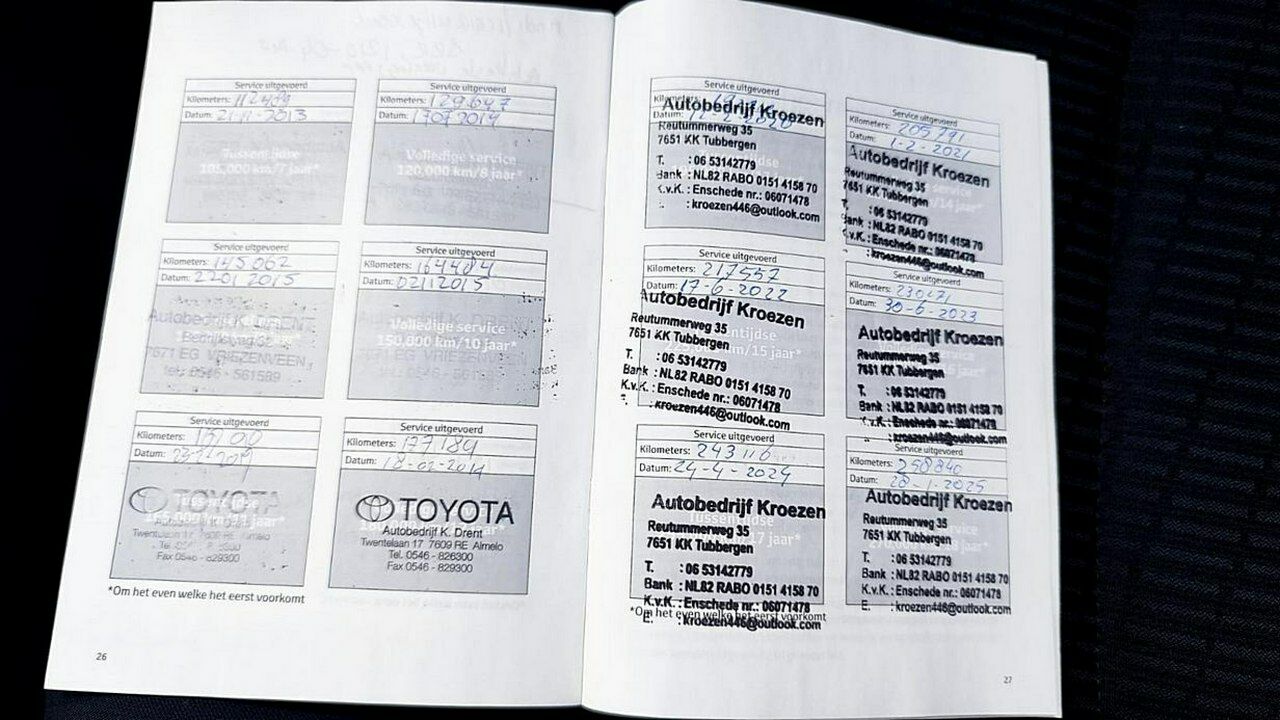 Service uitgevoerd
Kilometers: 112489
Datum: 21 11 2013
Tussentijdse
105.000 km/7 jaar*
Service uitgevoerd
Kilometers: 129647
Datum: 17072014
Volledige service
120.000 km/8 jaar*
Service uitgevoerd
Kilometers: 145062
Datum: 22 01 2015
Autobedrijf K. DRENT
7671 EG VRIEZENVEEN,
tel. 0546 - 561589
Service uitgevoerd
Kilometers: 164484
Datum: 02112015
Volledige service
150.000 km/10 jaar*
Service uitgevoerd
Kilometers:
Datum:
TOYOTA
Fax 0546 - 829300
Service uitgevoerd
Kilometers: 177189
Datum:
TOYOTA
Autobedrijf K. Drent
Twentelaan 17 7609 RE Almelo
Tel. 0546 - 826300
Fax 0546 - 829300
*Om het even welke het eerst voorkomt
26
Service uitgevoerd
Kilometers:
Datum:
Autobedrijf Kroezen
Reutummerweg 35
7651 KK Tubbergen
T. : 06 53142779
Bank : NL82 RABO 0151 4158 70
K.v.K. : Enschede nr.: 06071478
: kroezen446@outlook.com
Service uitgevoerd
Kilometers: 205791
Datum: 1-2-2021
Autobedrijf Kroezen
Reutummerweg 35
7651 KK Tubbergen
T. : 06 53142779
Bank : NL82 RABO 0151 4158 70
K.v.K. : Enschede nr.: 06071478
: kroezen446@outlook.com
Service uitgevoerd
Kilometers: 217557
Datum: 17-6-2022
Autobedrijf Kroezen
Reutummerweg 35
7651 KK Tubbergen
T. : 06 53142779
Bank : NL82 RABO 0151 4158 70
K.v.K. : Enschede nr.: 06071478
: kroezen446@outlook.com
Service uitgevoerd
Kilometers: 230171
Datum: 30-6-2023
Autobedrijf Kroezen
Reutummerweg 35
7651 KK Tubbergen
T. : 06 53142779
Bank : NL82 RABO 0151 4158 70
K.v.K. : Enschede nr.: 06071478
: kroezen446@outlook.com
Service uitgevoerd
Kilometers: 243116
Datum: 24-4-2024
Autobedrijf Kroezen
Reutummerweg 35
7651 KK Tubbergen
T. : 06 53142779
Bank : NL82 RABO 0151 4158 70
K.v.K. : Enschede nr.: 06071478
E. : kroezen446@outlook.com
Service uitgevoerd
Kilometers: 258840
Datum: 28-1-2025
Autobedrijf Kroezen
Reutummerweg 35
7651 KK Tubbergen
T. : 06 53142779
Bank : NL82 RABO 0151 4158 70
K.v.K. : Enschede nr.: 06071478
E. : kroezen446@outlook.com
*Om het even welke het eerst voorkomt
27